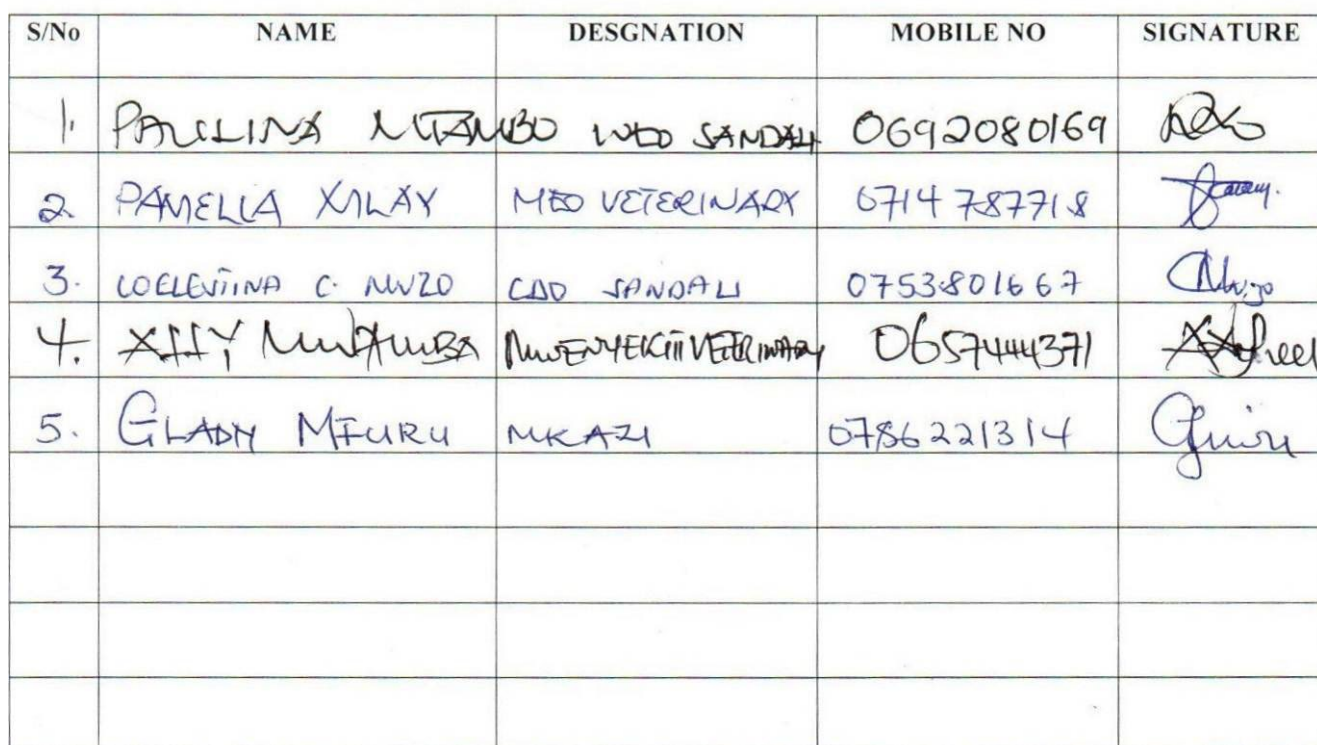 S/No NAME DESGNATION MOBILE NO SIGNATURE
1. PAULINA MTAMBO WEO SANDALI 0692080169
2. PAMELLA XILAY MEO VETERINARY 0714 787718
3. COELESTINA C. NUZO CDO SANDALI 0753801667
4. MWENYEKITI VETERINARY 0657444371
5. GLADY MFURU MKAZI 0786221314